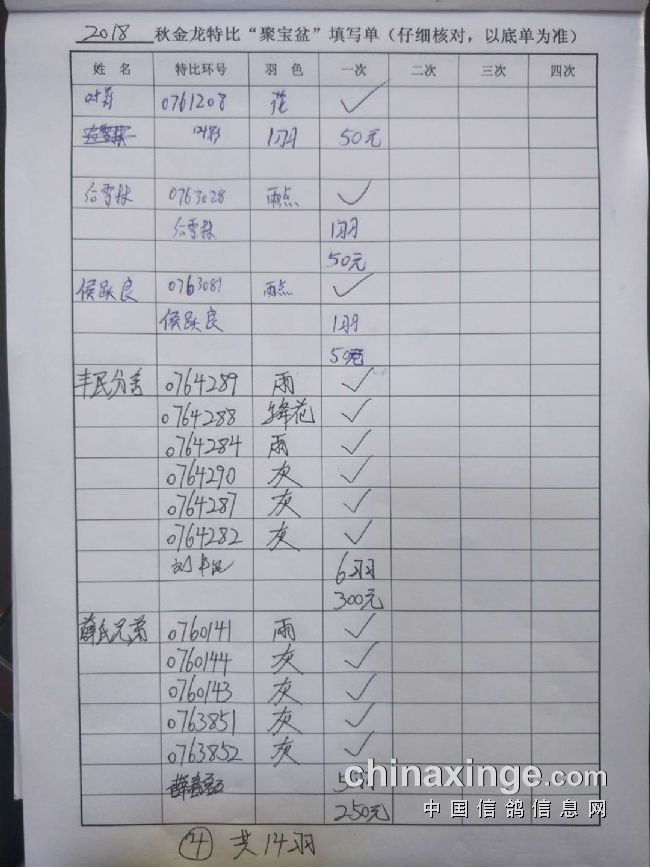 2018 秋金龙特比“聚宝盆”填写单（仔细核对，以底单为准）
姓 名 特比环号 羽 色 一次 二次 三次 四次
0761208 花 ✓
1羽 50元
0763028 雨点 ✓
1羽
50元
侯跃良 0763081 雨点 ✓
侯跃良 1羽
50元
0764289 雨 ✓
0764288 绛花 ✓
0764284 雨 ✓
0764290 灰 ✓
0764287 灰 ✓
0764282 灰 ✓
6羽
300元
薛氏兄弟 0760141 雨 ✓
0760144 灰 ✓
0760143 灰 ✓
0763851 灰 ✓
0763852 灰 ✓
5羽
250元
chinaxinge.com
中国信鸽信息网
④ 共14羽